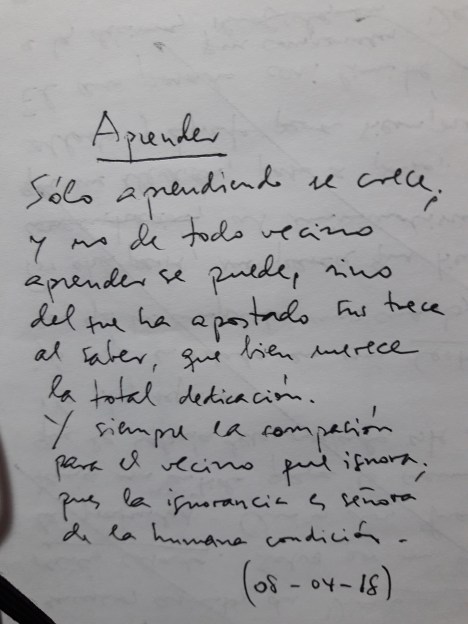 Aprender
Sólo aprendiendo se crece;
y no de todo vecino
aprender se puede, sino
del que ha apostado sus trece
al saber, que bien merece
la total dedicación.
Y siempre la compasión
para el vecino que ignora;
pues la ignorancia es señora
de la humana condición.
(08-04-18)